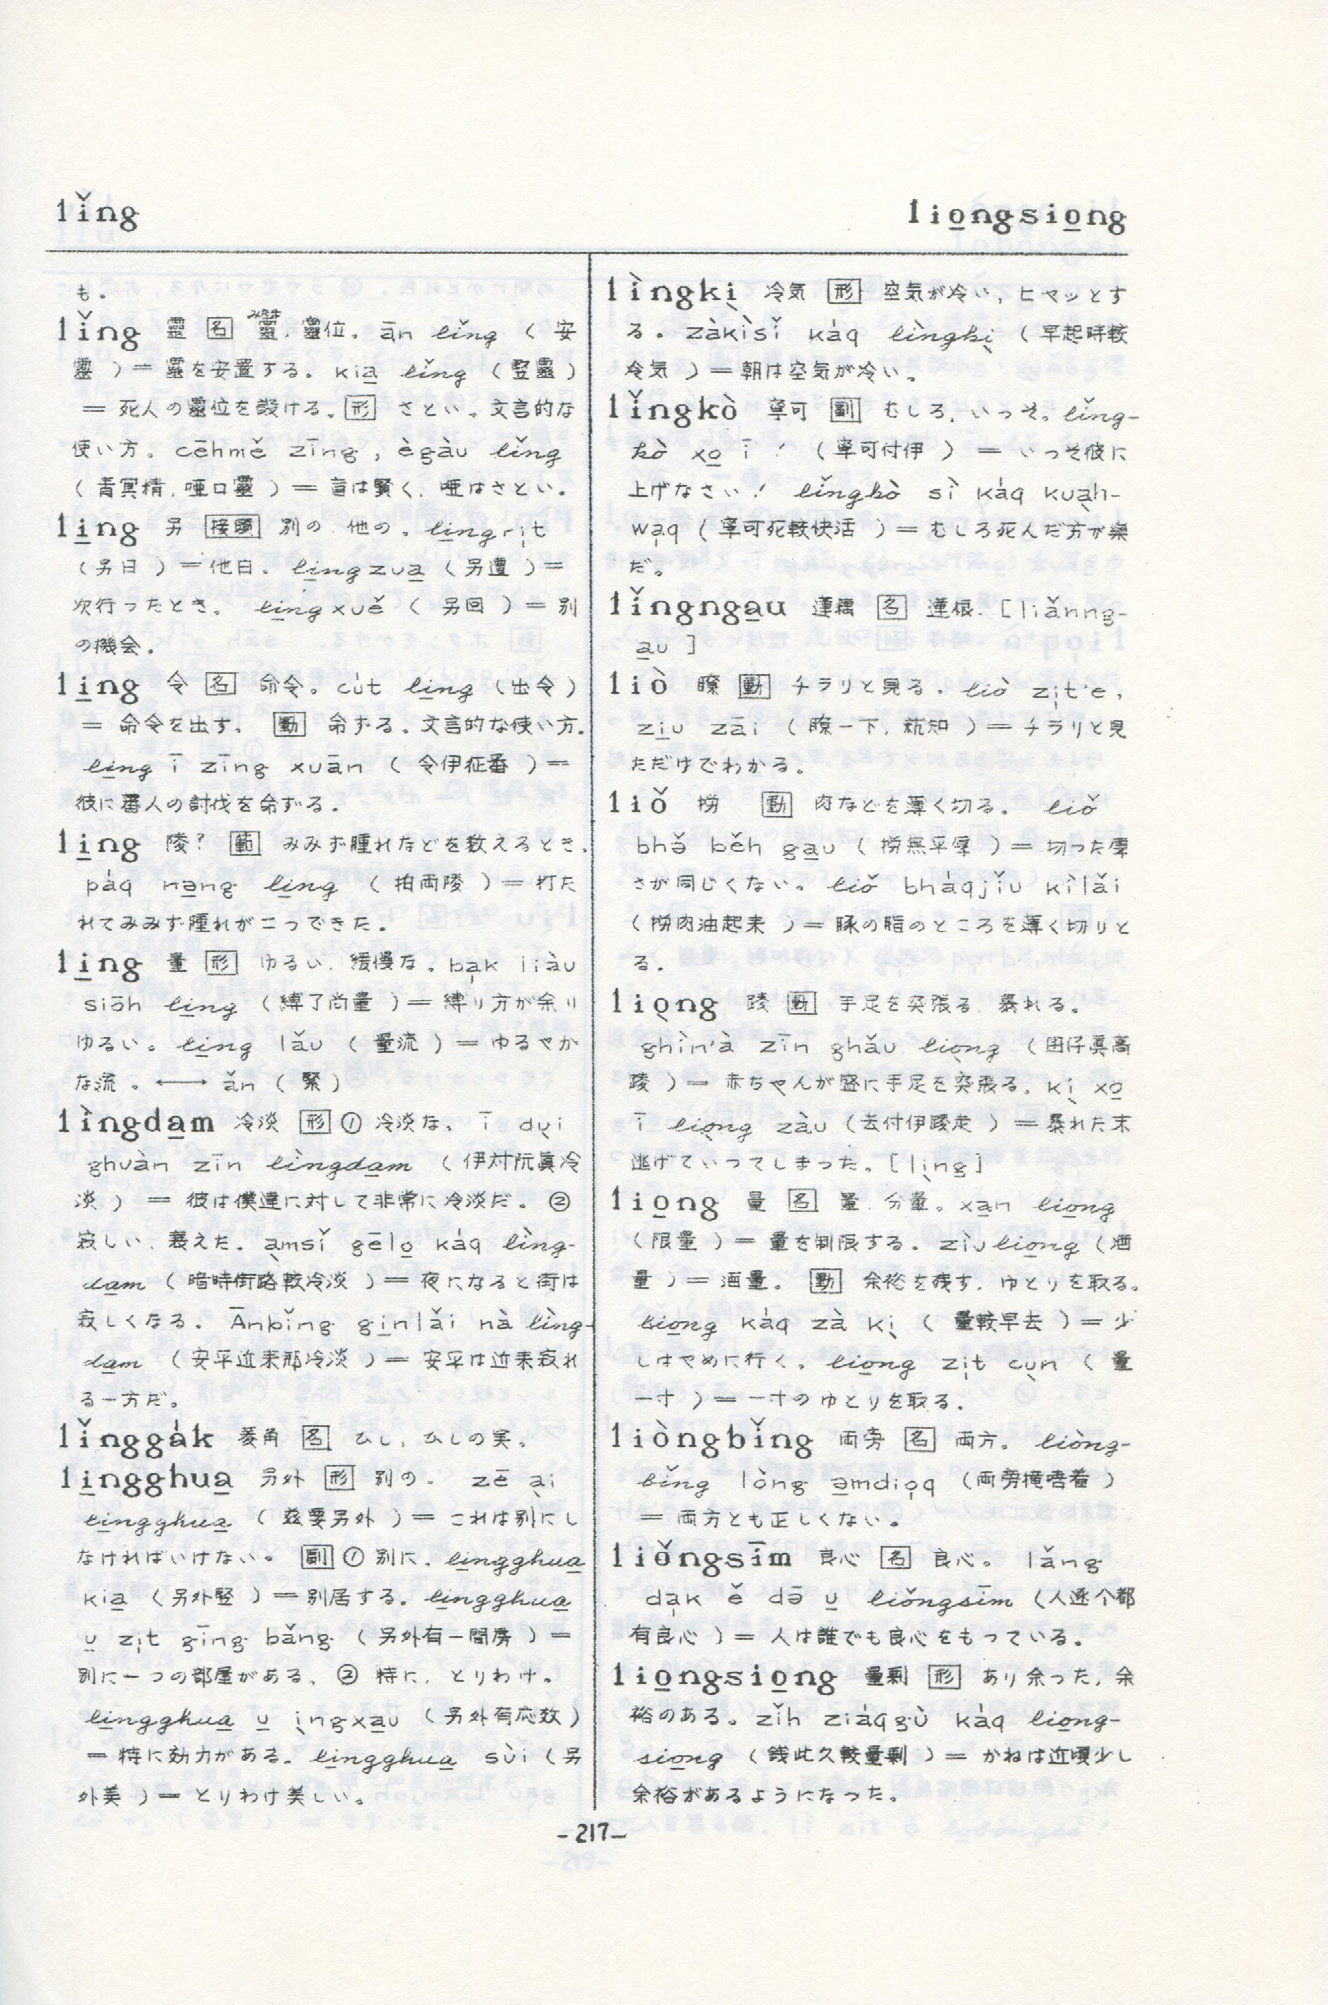 lǐng
li̱o̱ngsi̱o̱ng
も。
lǐng 靈 名 靈, 靈位。ān lǐng ( 安
靈 )＝靈を安置する。kia̱ lǐng ( 竪靈 )
＝死人の靈位を設ける。形 さとい。文言的な
使い方。cēhmě zīng , ègàu lǐng
( 青冥精, 啞口靈 )＝盲は賢く, 啞はさとい。
li̱ng 另 接頭 別の, 他の。li̱ngri̍t
( 另日 )＝他日。li̱ngzua̱ ( 另遭 )＝
次行ったとき。li̱ngxuě ( 另回 )＝別
の機会。
li̱ng 令 名 命令。cu̍t li̱ng ( 出令 )
＝命令を出す。動 命ずる。文言的な使い方。
li̱ng ī zīng xuān ( 令伊征番 )＝
彼に蕃人の討伐を命ずる。
li̱ng 陵? 範 みみず腫れなどを数えるとき。
pa̍q na̱ng li̱ng ( 拍両陵 )＝打た
れてみみず腫れが二つできた。
li̱ng 量 形 ゆるい, 緩慢な。ba̩k liàu
siōh li̱ng ( 縛了尚量 )＝縛り方が余り
ゆるい。li̱ng lǎu ( 量流 )＝ゆるやか
な流。←→ ǎn ( 緊 )
lìngda̱m 冷淡 形 ① 冷淡な。ī du̩i
ghuàn zīn lìngda̱m ( 伊対阮眞冷
淡 ) ＝ 彼は僕達に対して非常に冷淡だ。②
寂しい, 衰えた。a̩msǐ gēlo̱ ka̍q lìng-
da̱m ( 暗時街路較冷淡 )＝夜になると街は
寂しくなる。Ānbǐng gi̱nlǎi nà lìng-
da̱m ( 安平近来那冷淡 )＝安平は近来寂れ
る一方だ。
lǐngga̍k 菱角 名 ひし, ひしの実。
li̱ngghua̱ 另外 形 別の。zē a̩i
li̱ngghua̱ ( 玆要另外 )＝これは別にし
なければいけない。副 ① 別に。li̱ngghua̱
kia̱ ( 另外竪 )＝別居する。li̱ngghua̱
u̱ zi̩t gīng bǎng ( 另外有一間房 )＝
別に一つの部屋がある。② 特に, とりわけ。
li̱ngghua̱ u̱ i̩ngxa̱u ( 另外有応効 )
＝特に効力がある。li̱ngghua̱ sùi ( 另
外美 )＝とりわけ美しい。
lìngki̩ 冷気 形 空気が冷い, ヒヤッとす
る。zàkìsǐ ka̍q lìngki̩ ( 早起時較
冷気 )＝朝は空気が冷い。
lǐngkò 寧可 副 むしろ, いっそ。lǐng-
kò xo̱ ī ! ( 寧可付伊 ) ＝ いっそ彼に
上げなさい! lǐngkò sì ka̍q kua̩h-
wa̩q ( 寧可死較快活 )＝むしろ死んだ方が楽
だ。
lǐngnga̱u 蓮藕 名 蓮根。[ liǎnng-
a̱u ]
liò 瞭 動 チラリと見る。liò zi̩t'e,
zi̱u zāi ( 瞭一下, 就知 )＝チラリと見
ただけでわかる。
liǒ 撈 動 肉などを薄く切る。liǒ
bhə̌ běh ga̱u ( 撈無平厚 )＝切った厚
さが同じくない。liǒ bha̍qjǐu kìlǎi
( 撈肉油起来 )＝豚の脂のところを薄く切りと
る。
lio̩ng 踜 動 手足を突張る, 暴れる。
ghìn'à zīn ghǎu lio̩ng ( 囝仔眞高
踜 )＝赤ちゃんが盛に手足を突張る。ki̩ xo̱
ī lio̩ng zàu ( 去付伊踜走 )＝暴れた末
逃げていってしまった。[ li̩ng ]
lio̱ng 量 名 量, 分量。xa̱n lio̱ng
( 限量 )＝量を制限する。zìulio̱ng ( 酒
量 )＝酒量。動 余裕を残す, ゆとりを取る。
lio̱ng ka̍q zà ki̩ ( 量較早去 )＝少
しはやめに行く。lio̱ng zi̩t cu̩n ( 量
一寸 )＝一寸のゆとりを取る。
liòngbǐng 両旁 名 両方。liòng-
bǐng lòng a̱mdio̩q ( 両旁攏唔着 )
＝両方とも正しくない。
liǒngsīm 良心 名 良心。lǎng
da̩k ě də̄ u̱ liǒngsīm ( 人逐个都
有良心 )＝人は誰でも良心をもっている。
lio̱ngsio̱ng 量剰 形 あり余った, 余
裕のある。zǐh zia̍qgù ka̍q lio̱ng-
sio̱ng ( 銭此久較量剰 )＝かねは近頃少し
余裕があるようになった。
-217-